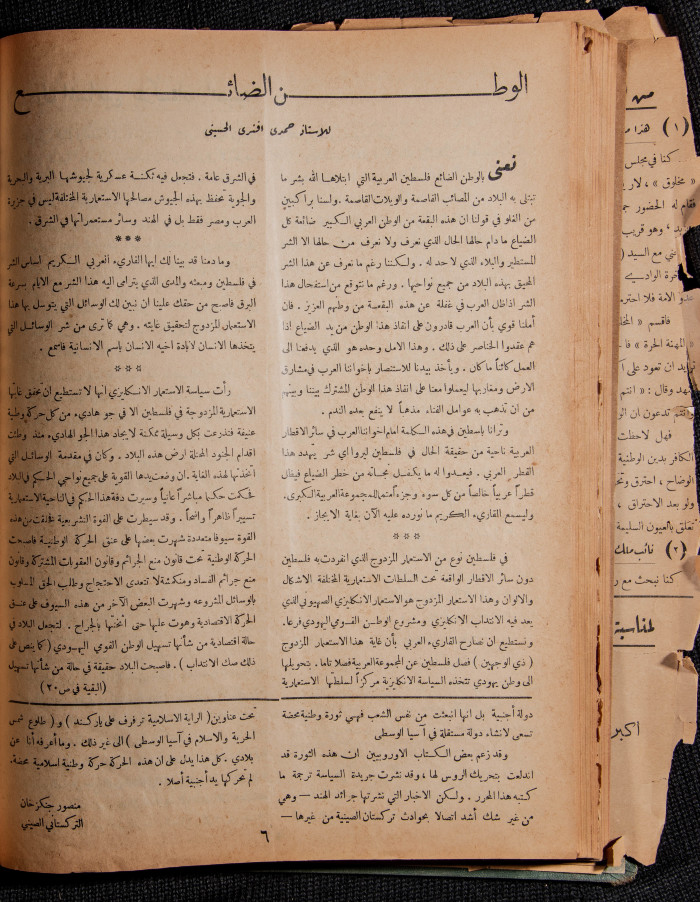 الوطن الضائع
للاستاذ حمدي افندي الحسيني
نعني بالوطن الضائع فلسطين العربية التي ابتلاها الله بشر ما
تبتلى به البلاد من المصائب القاصمة والويلات القاصمة . ولسنا براكبين
من الغلو في قولنا ان هذه البقعة من الوطن العربي الكبير ضائعة كل
الضياع ما دام حالها الحال الذي نعرف ولا نعرف من حالها الا الشر
المستطير والبلاء الذي لا حد له . ولكننا رغم ما نعرف عن هذا الشر
المحيق بهذه البلاد من جميع نواحيها . ورغم ما نتوقع من استفحال هذا
الشر اذا ظل العرب في غفلة عن هذه البقعة من وطنهم العزيز . فان
أملنا قوي بأن العرب قادرون على انقاذ هذا الوطن من يد الضياع اذا
هم عقدوا الخناصر على ذلك . وهذا الامل وحده هو الذي يدفعنا الى
العمل كائناً ما كان . ويأخذ بيدنا للاستنصار باخواننا العرب في مشارق
الارض ومغاربها ليعملوا معنا على انقاذ هذا الوطن المشترك بيننا وبينهم
من ان تذهب به عوامل الفناء مذهباً لا ينفع بعده الندم .
وترانا باسطين في هذه الكلمة امام اخواننا العرب في سائر الاقطار
العربية ناحية من حقيقة الحال في فلسطين ليروا اي شر يهدد هذا
القطر العربي . فيعدوا له ما يكفل نجاته من خطر الضياع فيظل
قطراً عربياً خالصاً من كل سوء وجزءاً متمماً للمجموعة العربية الكبرى .
وليسمع القاريء الكريم ما نورده عليه الآن بغاية الايجاز .
* * *
في فلسطين نوع من الاستعمار المزدوج الذي انفردت به فلسطين
دون سائر الاقطار الواقعة تحت السلطات الاستعمارية المختلفة الاشكال
والالوان وهذا الاستعمار المزدوج هو الاستعمار الانكليزي الصهيوني الذي
يعد فيه الانتداب الانكليزي ومشروع الوطن القومي اليهودي فرعا .
ونستطيع ان نصارح القاريء العربي بأن غاية هذا الاستعمار المزدوج
( ذي الوجهين ) فصل فلسطين عن المجموعة العربية فصلا تاما . بتحويلها
الى وطن يهودي تتخذه السياسة الانكليزية مركزاً لسلطتها الاستعمارية
في الشرق عامة . فتجعل فيه ثكنة عسكرية لجيوشها البرية والبحرية
والجوية تحفظ بهذه الجيوش مصالحها الاستعمارية المختلفة ليس في جزيرة
العرب ومصر فقط بل في الهند وسائر مستعمراتها في الشرق .
* * *
وما دمنا قد بينا لك ايها القاريء العربي الكريم اساس الشر
في فلسطين ومبعثه والمدى الذي يترامى اليه هذا الشر مع الايام بسرعة
البرق فأصبح من حقك علينا ان نبين لك الوسائل التي يتوسل بها هذا
الاستعمار المزدوج لتحقيق غايته . وهي كما ترى من شر الوسائل التي
يتخذها الانسان لابادة اخيه الانسان باسم الانسانية فاسمع .
* * *
رأت سياسة الاستعمار الانكليزي انها لا تستطيع ان تحقق غايتها
الاستعمارية المزدوجة في فلسطين الا في جو هاديء من كل حركة وطنية
عنيفة فتذرعت بكل وسيلة ممكنة لايجاد هذا الجو الهاديء منذ وطئت
اقدام الجنود المحتلة ارض هذه البلاد . وكان في مقدمة الوسائل التي
اتخذتها لهذه الغاية . ان وضعت يدها القوية على جميع نواحي الحكم في البلاد
فحكمت حكما مباشراً عاتياً وسيرت دفة هذا الحكم في الناحية الاستعمارية
تسييراً ظاهراً واضحاً . وقد سيطرت على القوة التشريعية فخلقت من هذه
القوة سيوفا متعددة شهرت بعضها على عنق الحركة الوطنية فاصبحت
الحركة الوطنية تحت قانون منع الجرائم وقانون العقوبات المشتركة وقانون
منع جرائم الفساد ومنكمشة لا تتعدى الاحتجاج وطلب الحق المسلوب
بالوسائل المشروعة وشهرت البعض الآخر من هذه السيوف على عنق
الحركة الاقتصادية وهوت عليها حتى أثخنتها بالجراح . لتجعل البلاد في
حالة اقتصادية من شأنها تسهيل الوطن القومي اليهودي ( كما ينص على
ذلك صك الانتداب ) . فاصبحت البلاد حقيقة في حالة من شأنها تسهيل
(البقية في ص ٢٠)
دولة أجنبية بل انها انبعثت من نفس الشعب فهي ثورة وطنية محضة
تسعى لانشاء دولة مستقلة في آسيا الوسطى
وقد زعم بعض الكتاب الاوروبيين ان هذه الثورة قد
اندلعت بتحريك الروس لها ، وقد نشرت جريدة السياسة ترجمة ما
كتبه هذا المحرر . ولكن الاخبار التي نشرتها جرائد الهند — وهي
من غير شك أشد اتصالا بحوادث تركستان الصينية من غيرها —
تحت عناوين ( الراية الاسلامية ترفرف على ياركند ) و ( طلوع شمس
الحرية والاسلام في آسيا الوسطى ) الى غير ذلك . وما أعرفه أنا عن
بلادي . كل هذا يدل على ان هذه الحركة حركة وطنية اسلامية محضة .
لم تحركها يد أجنبية أصلا .
منصور جنكيز خان
التركستاني الصيني
٦
(١) هذا
كنا في مجلس
« مخلوق » ، لا
فقام له الحضور
وهو قريب
مع السيد (
الامة فلا
فاقسم
« المهنة الحرة »
ان تعود على
وقال : « انتم
تدعون ان
فهل لاحظت
الكافر بدين الوطنية
الوضاح ، احترق
ولو بعد الاحتراق
بالعيون السليمة
(٢) نائب ملك
كنا نبحث مع
لمناسبة
اكبر